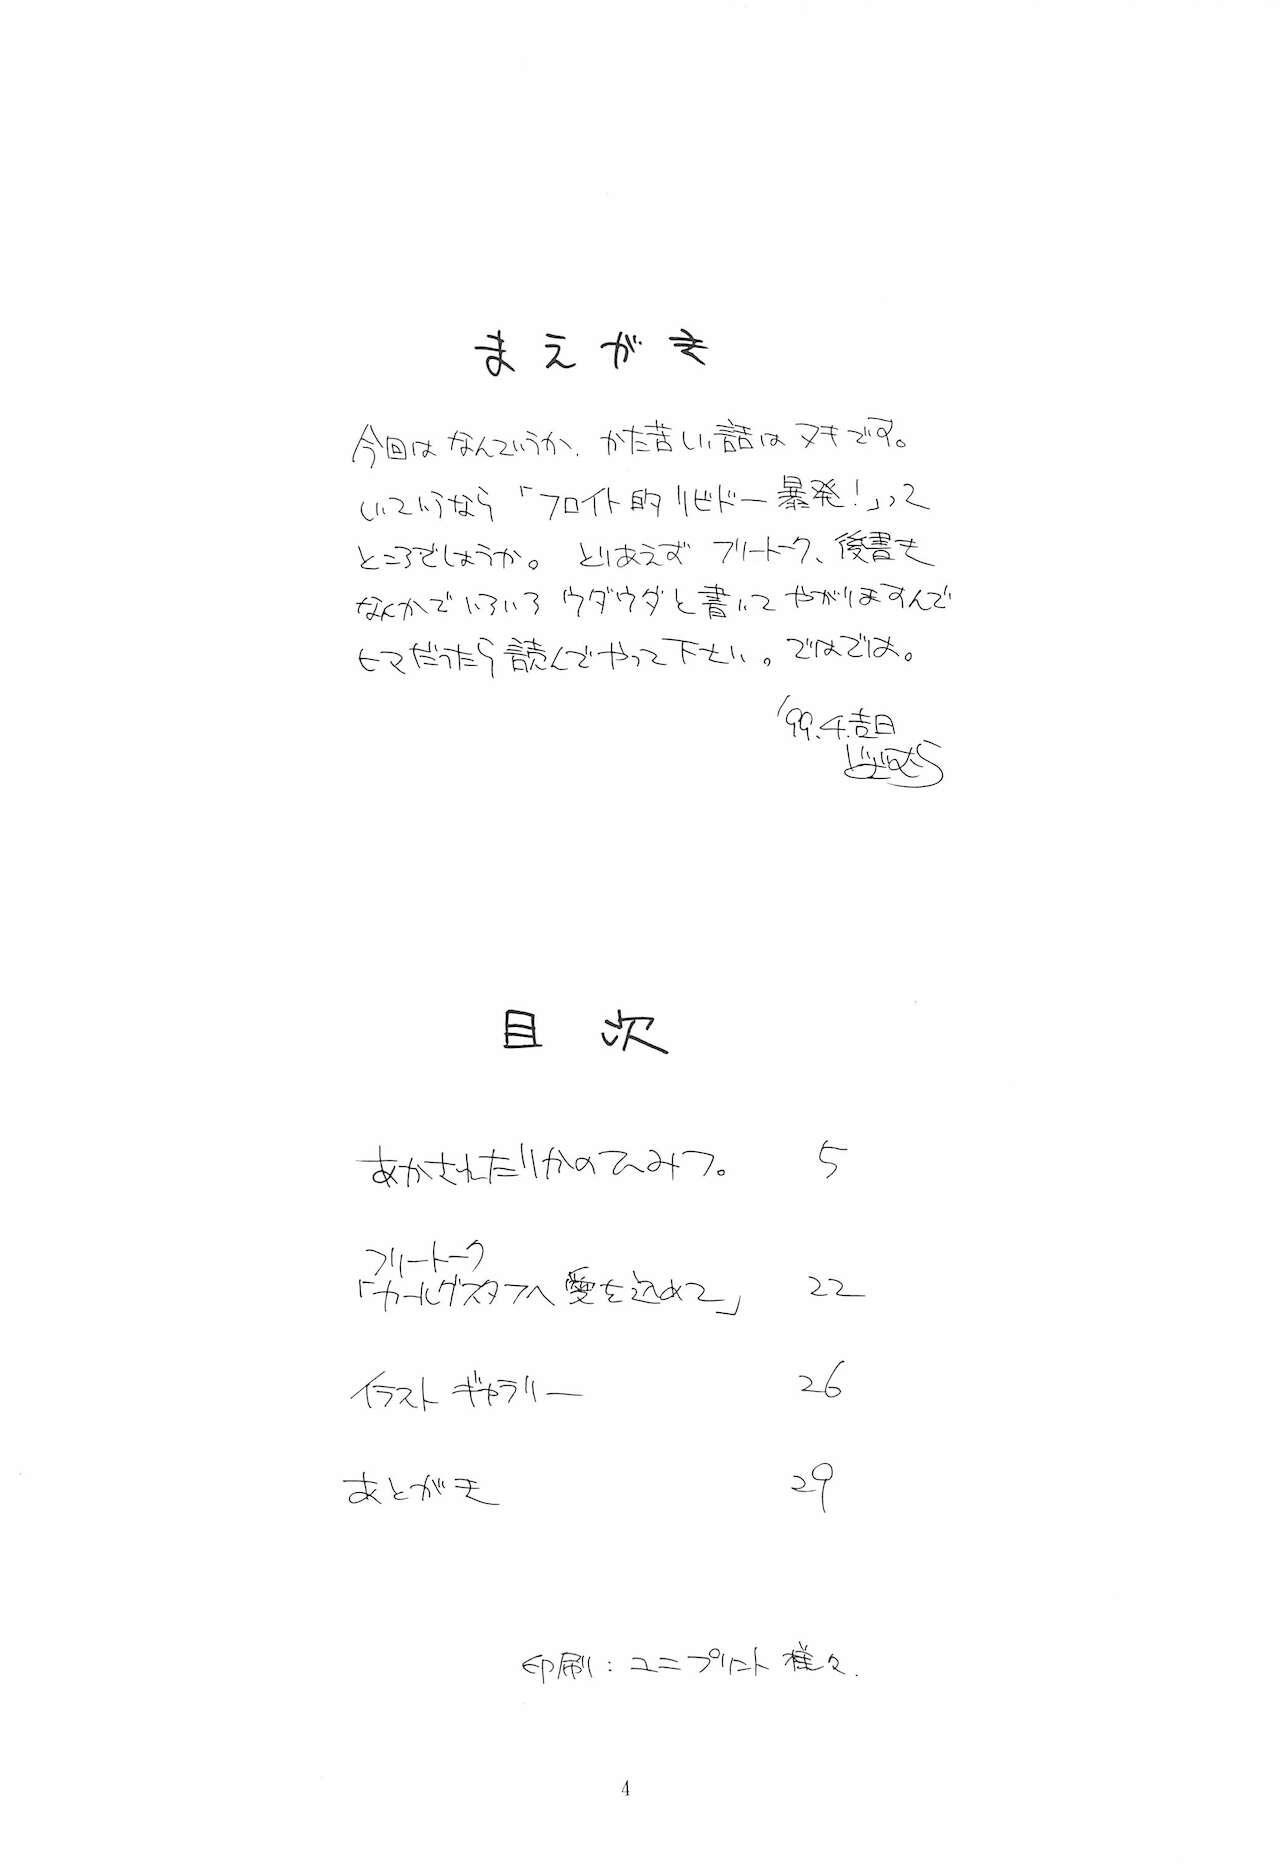 まえがき
今回はなんていうか、かた苦しい話はヌキです。
しいていうなら「フロイト的リビドー暴発！」って
ところでしょうか。とりあえずフリートーク、後書き
なんかでいろいろウダウダと書いてやがりますんで
ヒマだったら読んでやって下さい。ではでは。
'99.4.吉日
目次
あかされたりかのひみつ。 5
フリートーク
「カールグスタフへ愛を込めて」 22
イラストギャラリー 26
あとがき 29
印刷：ユニプリント様々.
4